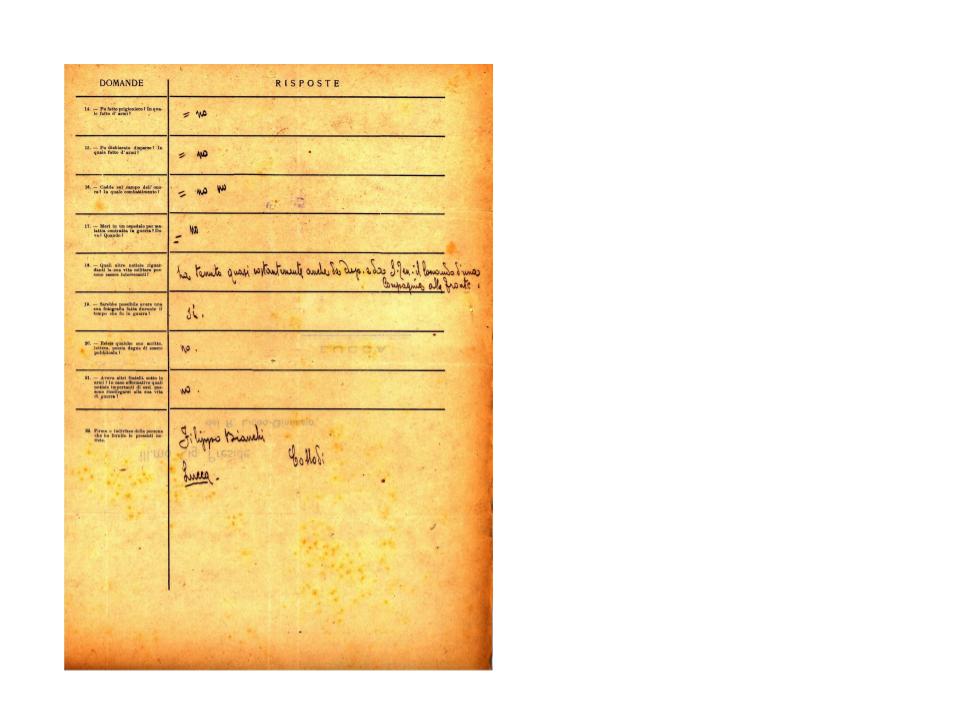 DOMANDE
RISPOSTE
14. — Fu fatto prigioniero? In qua-
le fatto d'armi?
= no
15. — Fu dichiarato disperso? In
quale fatto d'armi?
= no
16. — Cadde sul campo dell'ono-
re? In quale combattimento?
= no no
17. — Morì in un ospedale per ma-
lattia contratta in guerra? Do-
ve? Quando?
= no
18. — Quali altre notizie riguar-
danti la sua vita militare pos-
sono essere interessanti?
ha tenuto quasi costantemente anche da Asp. e da S. Ten. il Comando d'una
Compagnia alla fronte.
19. — Sarebbe possibile avere una
sua fotografia fatta durante il
tempo che fu in guerra?
Sì.
20. — Esiste qualche suo scritto,
lettera, poesia degna di essere
pubblicata?
no.
21. — Aveva altri fratelli sotto le
armi? In caso affermativo quali
notizie importanti di essi pos-
sono ricollegarsi alla sua vita
di guerra?
no.
22. Firma e indirizzo della persona
che ha fornito le presenti no-
tizie.
Filippo Bianchi
Collodi
Lucca.
LUCCA
del R. Liceo-Ginnasio
Ill.mo Sig. Preside